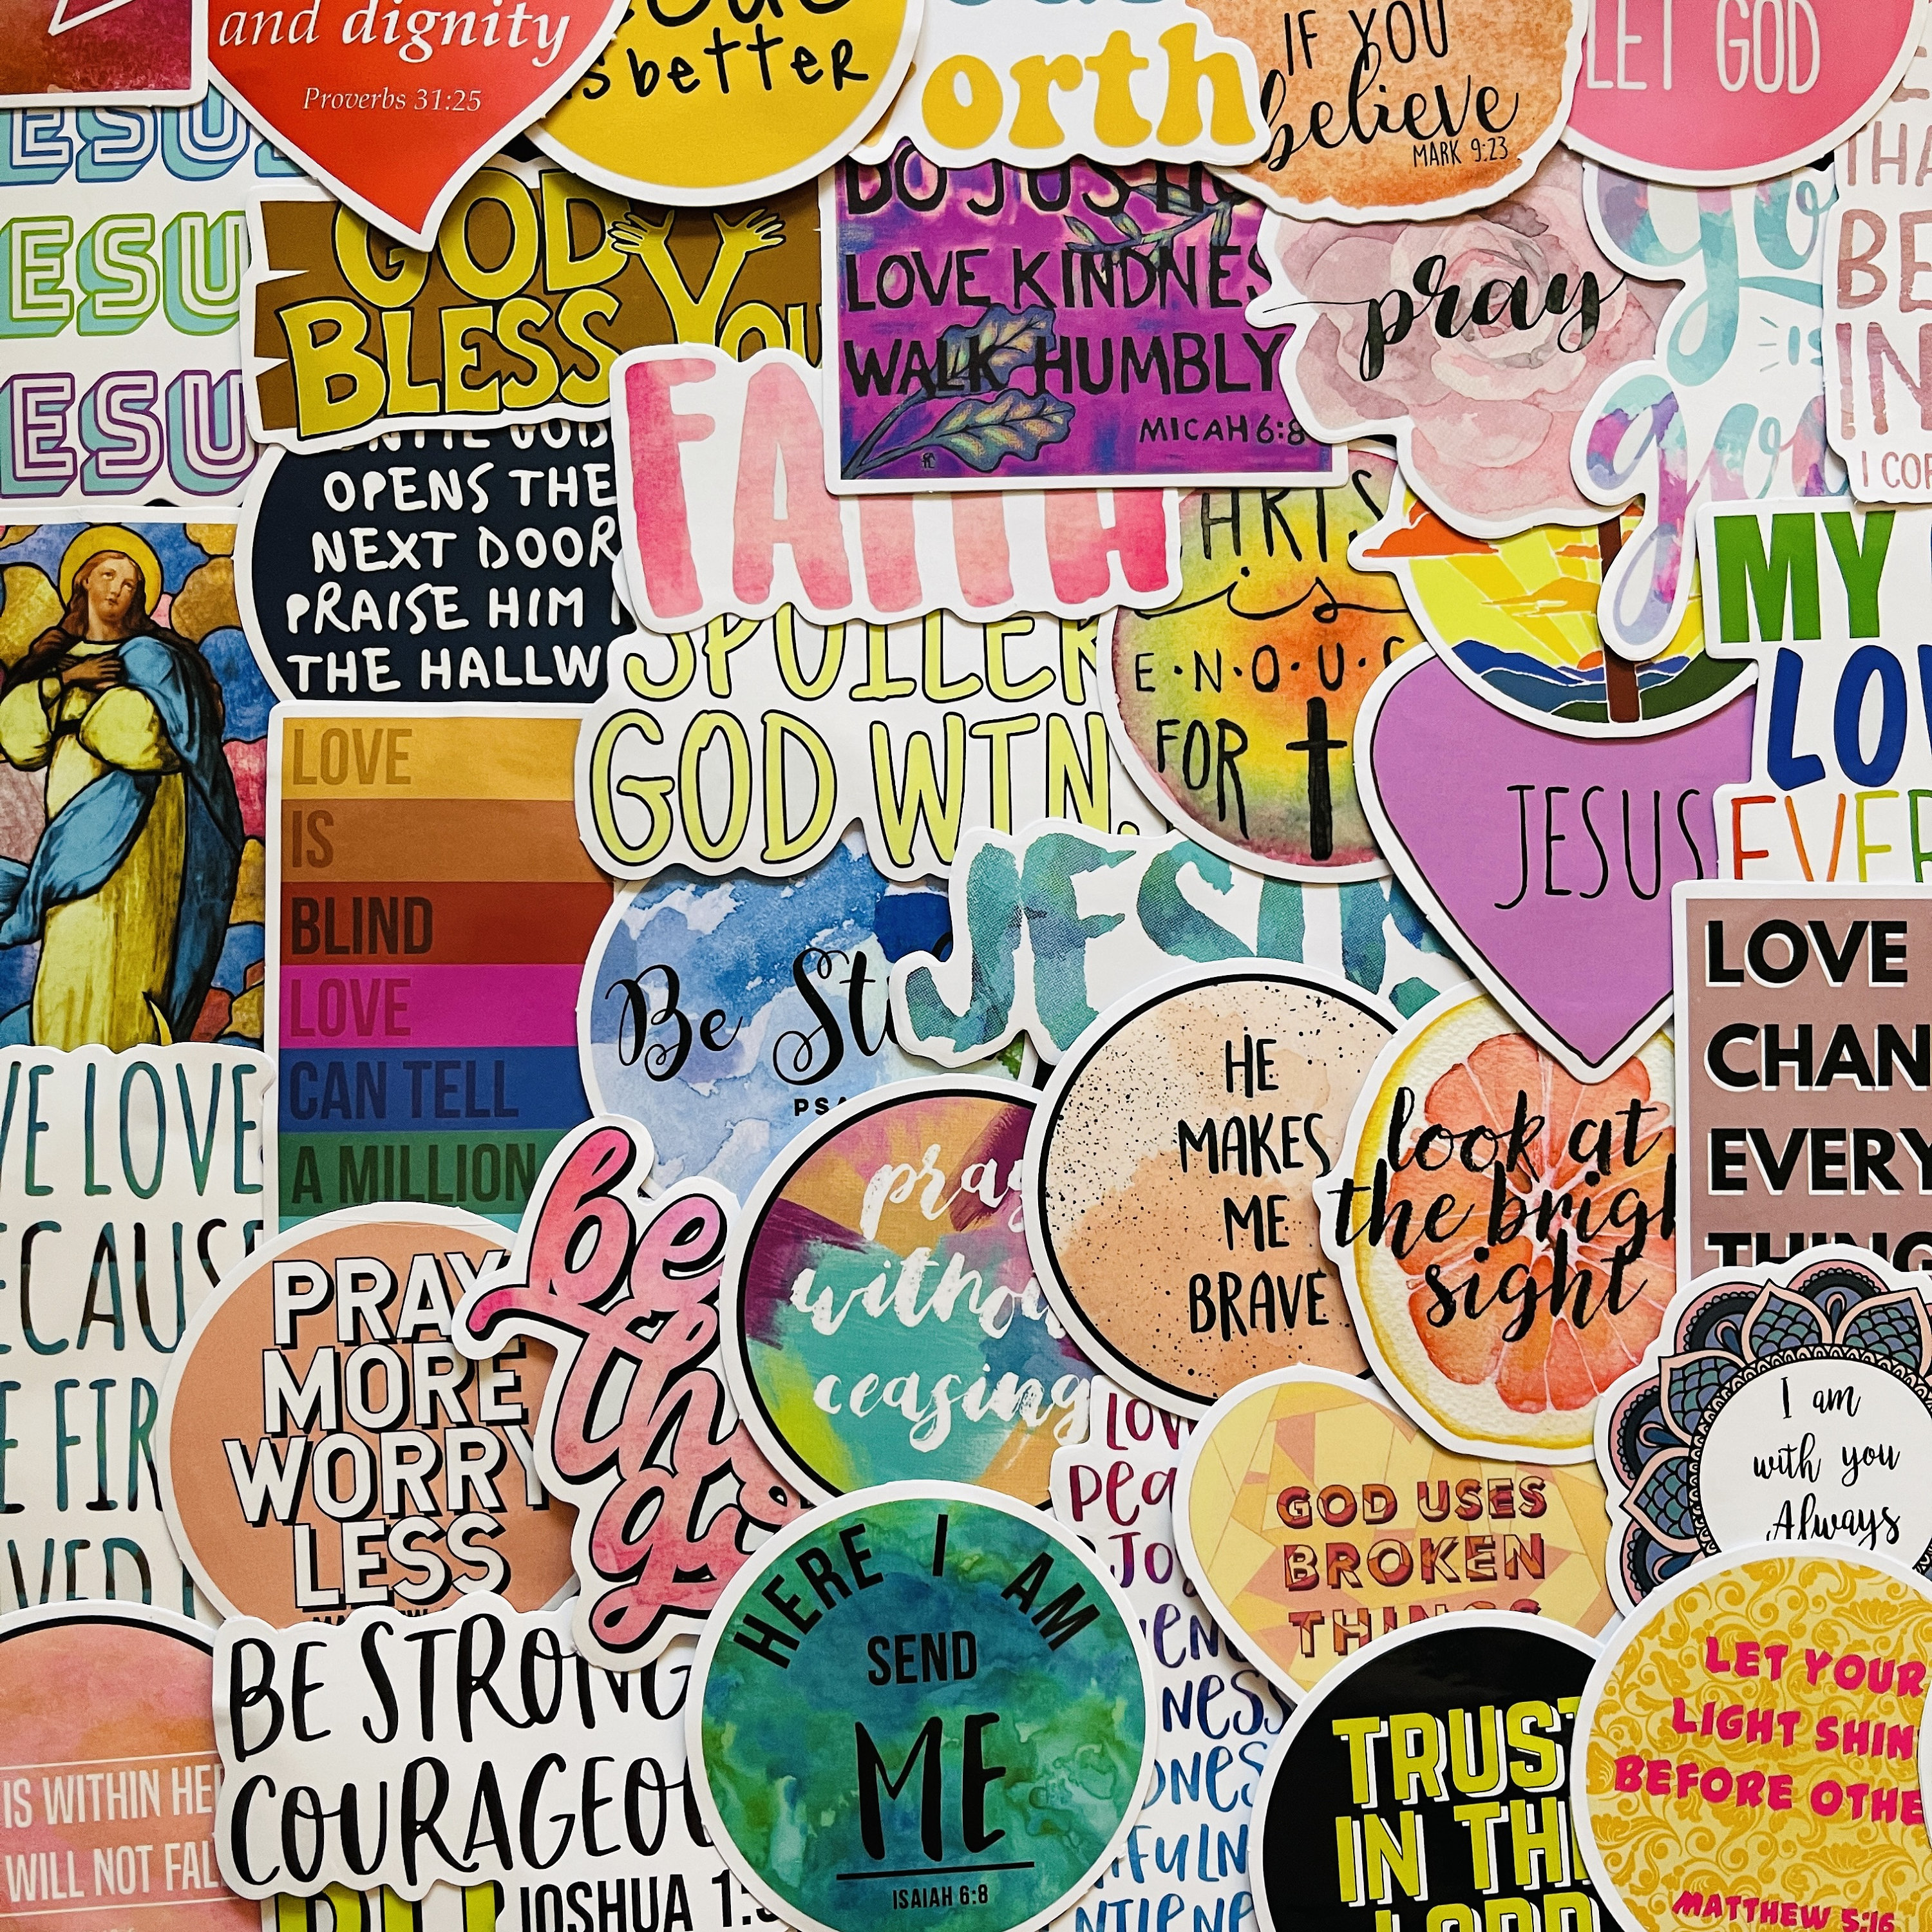 and dignity
Proverbs 31:25
better
orth
IF YOU
believe
MARK 9:23
LET GOD
ESU
ESU
ESU
GOD
BLESS YOU
DO JUSTI
LOVE KINDNES
WALK HUMBLY
MICAH 6:8
pray
go
is
good
BE
IN
I COR
OPENS THE
NEXT DOOR
PRAISE HIM
THE HALLW
FAITH
SPOILER
GOD WIN.
ARTS
is
E·N·O·U·G
FOR
MY
LOV
EVER
JESUS
LOVE
IS
BLIND
LOVE
CAN TELL
A MILLION
Be Sti
PSA
JESUS
HE
MAKES
ME
BRAVE
look at
the brigh
sight
LOVE
CHAN
EVERY
THING
VE LOVE
ECAUSE
E FIR
VED
PRAY
MORE
WORRY
LESS
be
the
go
pray
withou
ceasing
I am
with you
Always
Lov
Pea
Jo
GOD USES
BROKEN
THINGS
HERE I AM
SEND
ME
ISAIAH 6:8
BE STRONG
COURAGEOU
JOSHUA 1:
IS WITHIN HER
WILL NOT FAL
ien
ness
ness
fuln
ntlene
TRUST
IN THE
LORD
LET YOUR
LIGHT SHIN
BEFORE OTHE
MATTHEW 5:16